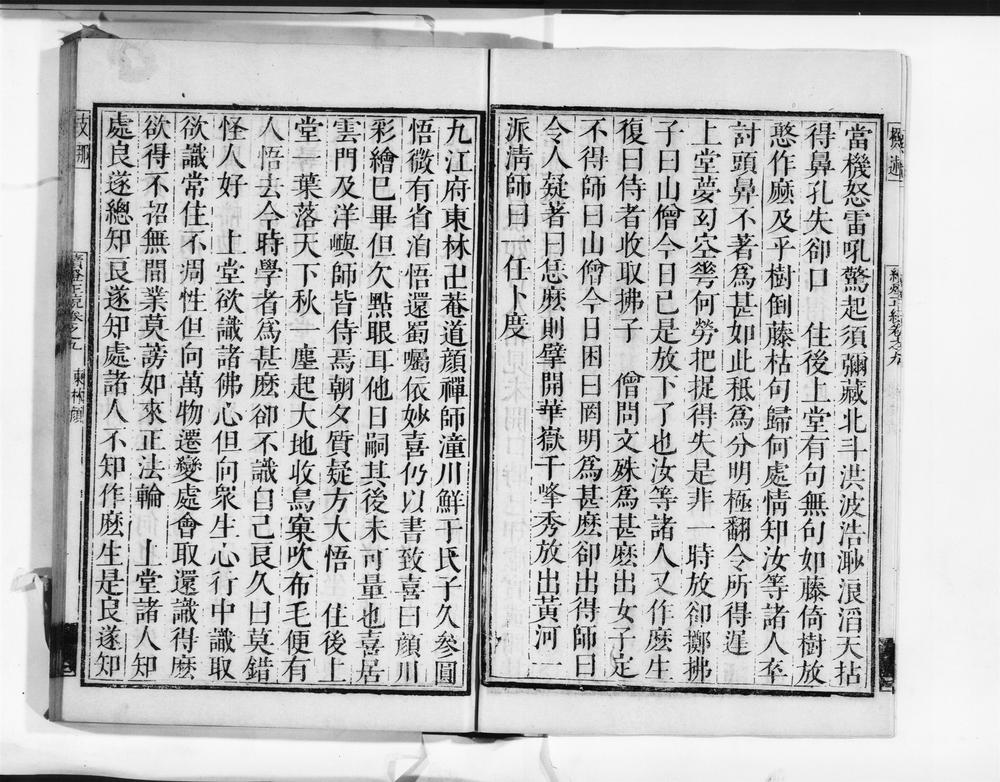 當機怒雷吼驚起須彌藏北斗洪波浩渺浪滔天拈
得鼻孔失卻口　住後上堂有句無句如藤倚樹放
憨作麼及乎樹倒藤枯句歸何處情知汝等諸人卒
討頭鼻不著為甚如此秪為分明極翻令所得遲
上堂夢幻空華何勞把捉得失是非一時放卻擲拂
子曰山僧今日已是放下了也汝等諸人又作麼生
復曰侍者收取拂子　僧問文殊為甚麼出女子定
不得師曰山僧今日困曰罔明為甚麼卻出得師曰
令人疑著曰恁麼則擘開華嶽千峰秀放出黃河一
派清師曰一任卜度
九江府東林卍菴道顏禪師潼川鮮于氏子久參圓
悟微有省洎悟還蜀囑依妙喜仍以書致喜曰顏川
彩繪已畢但欠點眼耳他日嗣其後未可量也喜居
雲門及洋嶼師皆侍焉朝夕質疑方大悟　住後上
堂一葉落天下秋一塵起大地收鳥窠吹布毛便有
人悟去今時學者為甚麼卻不識自己良久曰莫錯
怪人好　上堂欲識諸佛心但向眾生心行中識取
欲識常住不凋性但向萬物遷變處會取還識得麼
欲得不招無間業莫謗如來正法輪　上堂諸人知
處良遂總知良遂知處諸人不知作麼生是良遂知
支那
東林顏